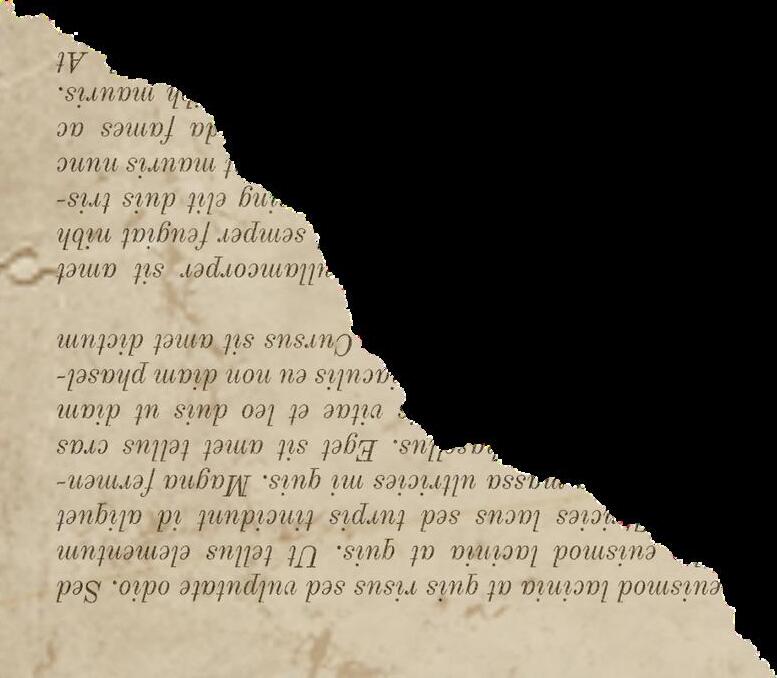 euismod lacinia at quis risus sed vulputate odio. Sed
euismod lacinia at quis. Ut tellus elementum
lacus sed turpis tincidunt id aliquet
massa ultricies mi quis. Magna fermen-
Eget sit amet tellus cras
vitae et leo duis ut diam
iaculis eu non diam phasel-
Cursus sit amet dictum
ullamcorper sit amet
semper feugiat nibh
elit duis tris-
mauris nunc
fames ac
mauris.
At